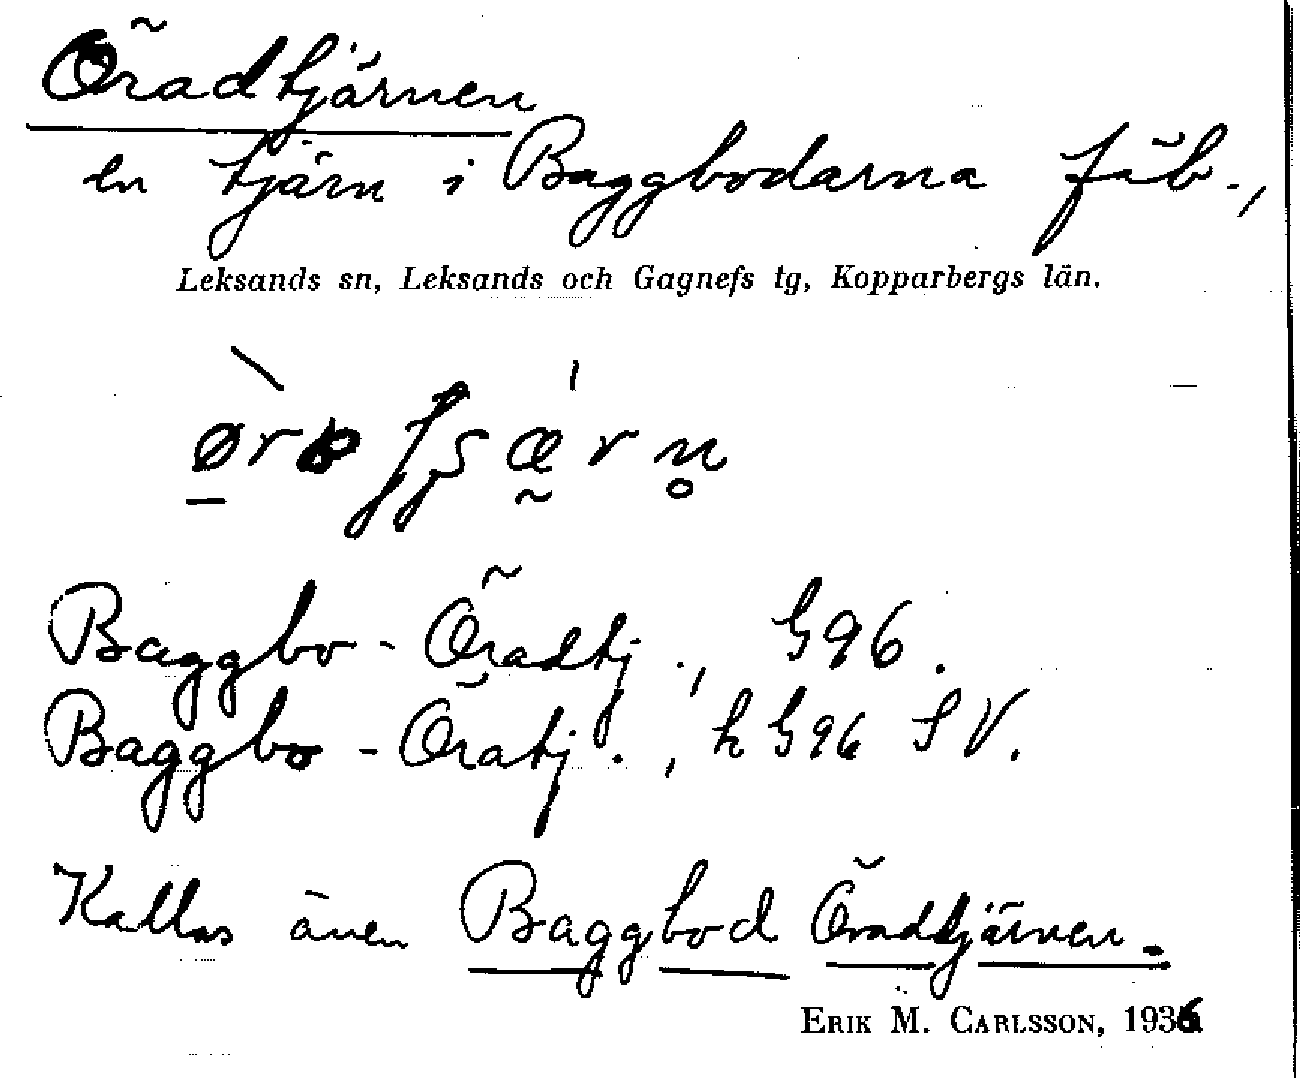 Öradtjärnen
en tjärn i Baggbodarna fäb.,
Leksands sn, Leksands och Gagnefs tg, Kopparbergs län.
Baggbo-Öradtj., G96.
Baggbo-Öratj., h G96 SV.
Kallas även Baggbod Öradtjärnen.
ERIK M. CARLSSON, 1936